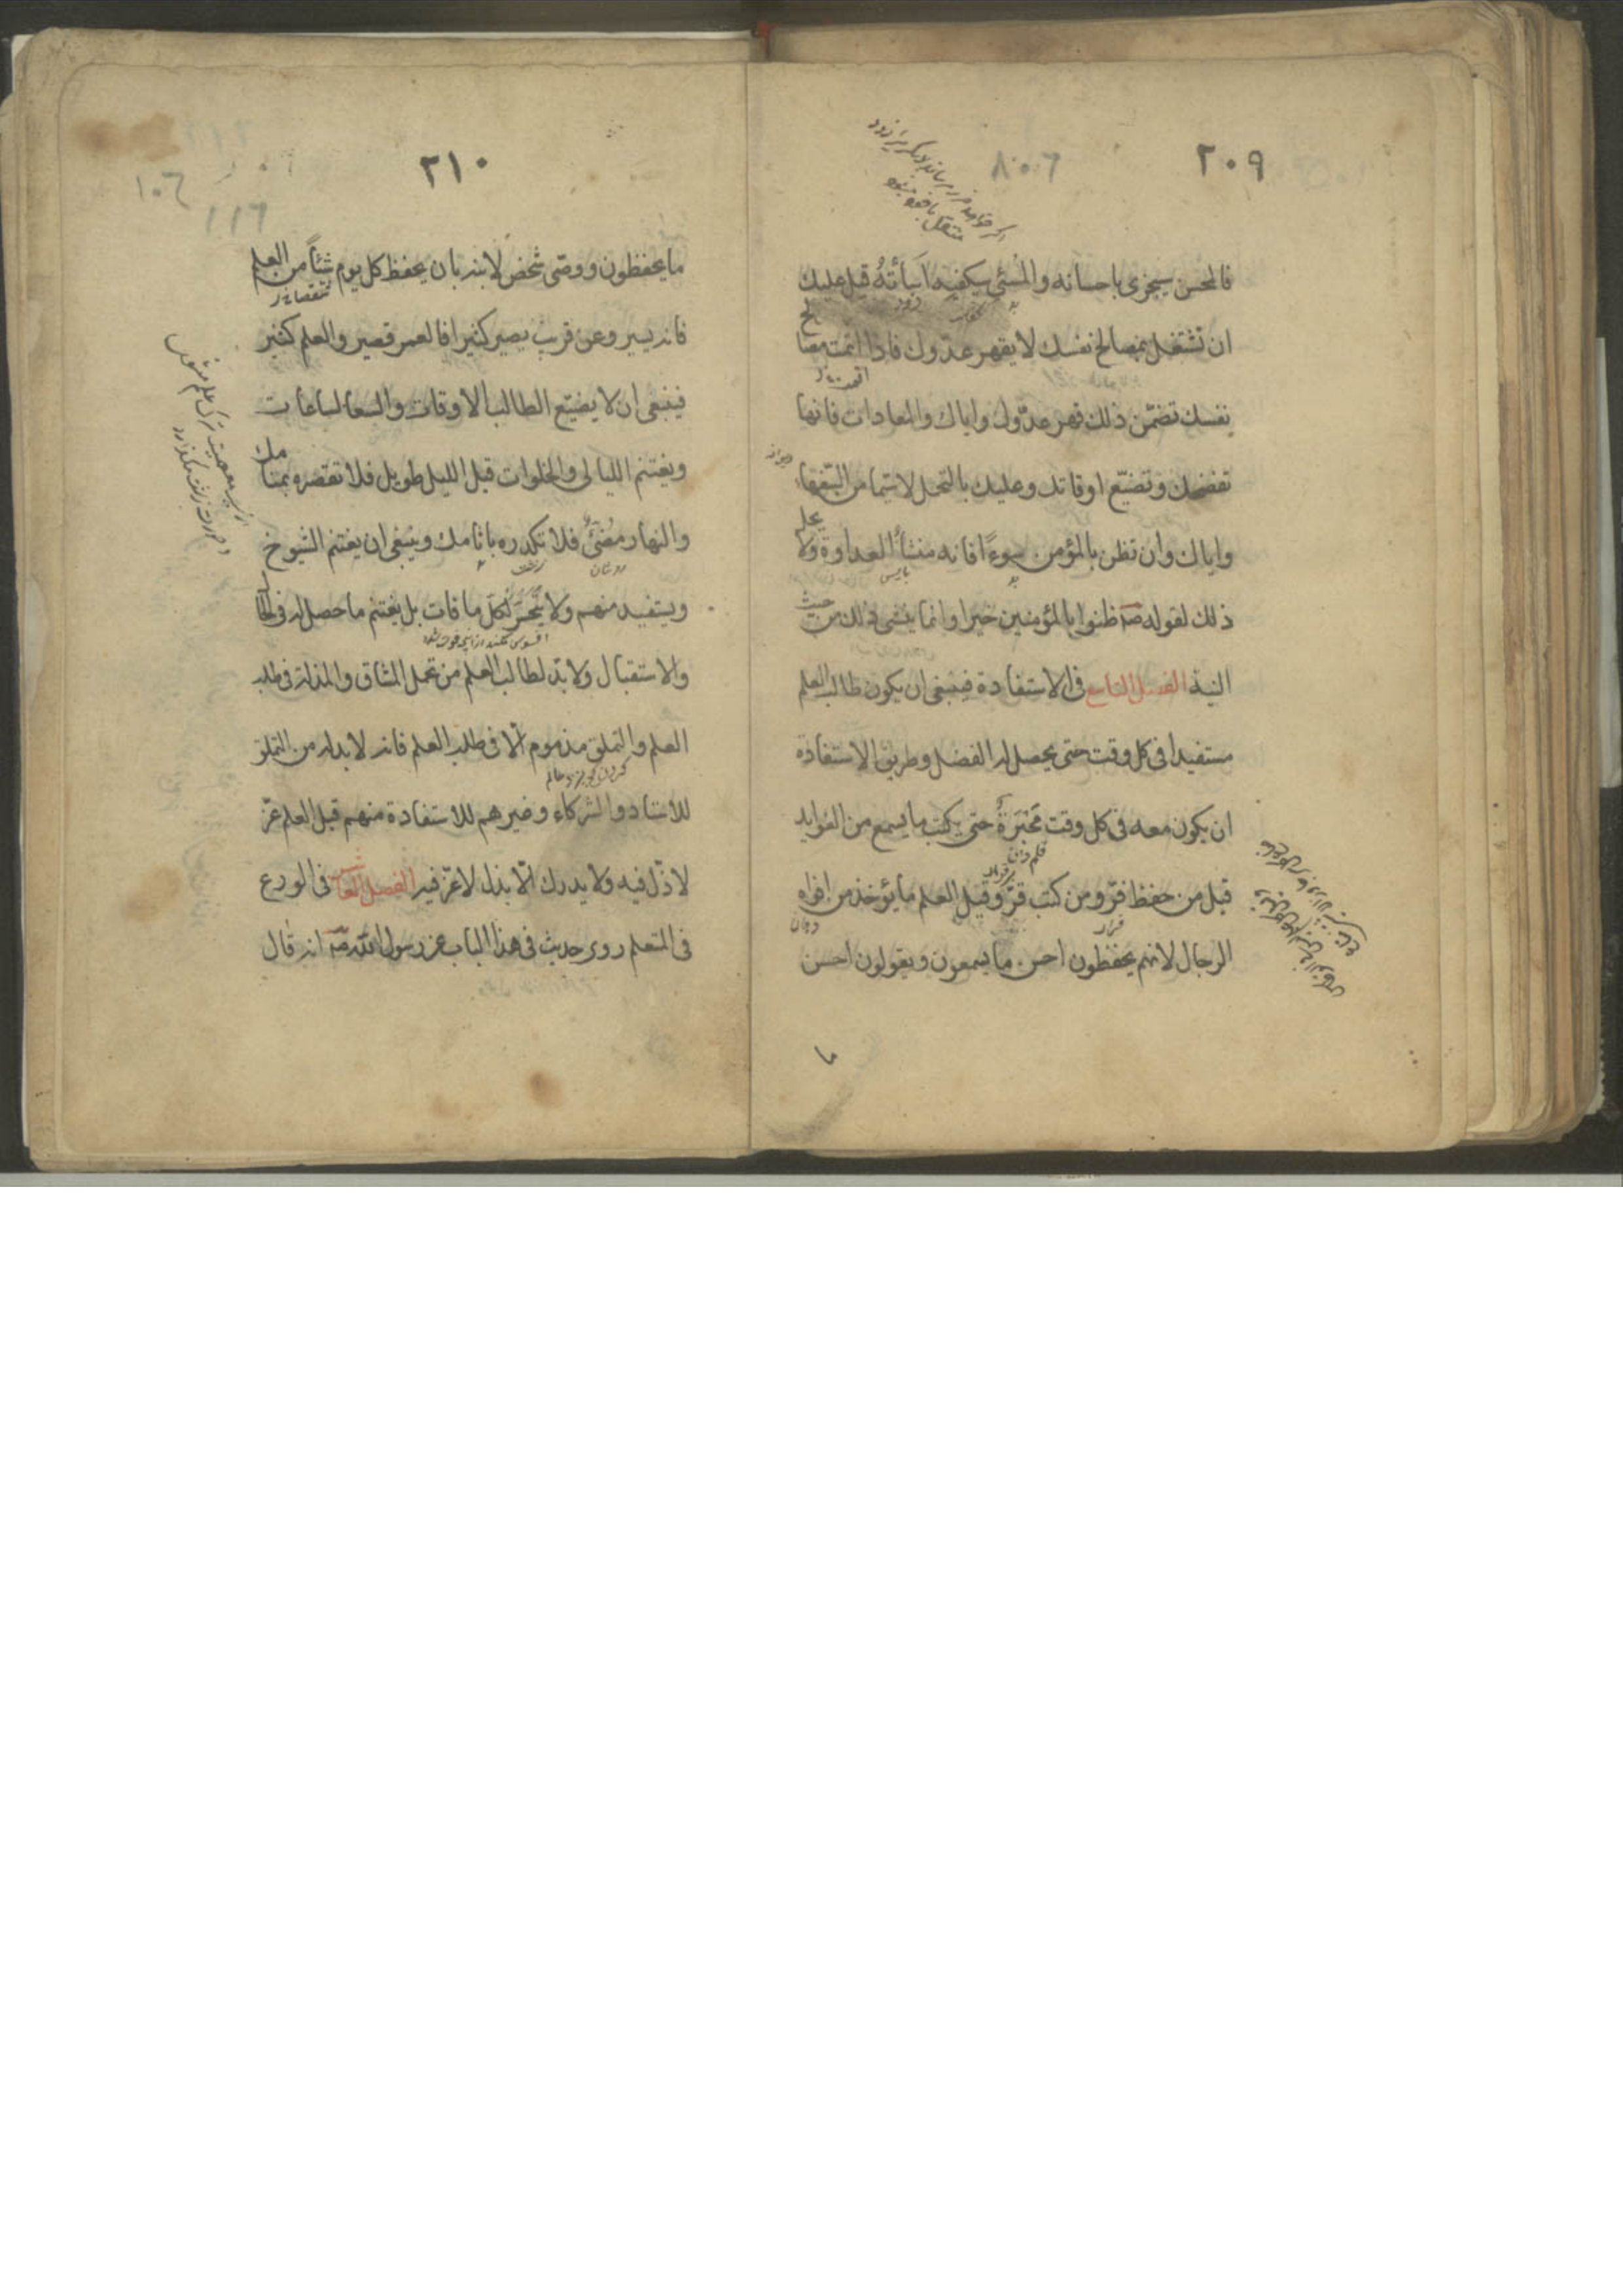 ٢٠٩
٨٠٦
فالمحسن سيجزى باحسانه والمسئ سيكفيه اساأته قيل عليك
ان تشتغل بمصالح نفسك لا يقهر عدوك فاذا اتمت مصالح
نفسك تضمن ذلك قهر عدوك واياك والمعادات فانها
تفضحك وتضيع اوقاتك وعليك بالتحمل لاسيما من السفهاء
واياك وان تظن بالمؤمن سوءًا فانه منشأ العداوة ولا يحل
ذلك لقوله صه ظنوا بالمؤمنين خيرا وانما ينشئ ذلك من خبث
النية الفصل التاسع فى الاستفادة فينبغى ان يكون طالب العلم
مستفيدا فى كل وقت حتى يحصل له الفضل وطريق الاستفادة
ان يكون معه فى كل وقت محبرة حتى يكتب ما يسمع من الفوايد
قلم دان
قيل من حفظ فرّ ومن كتب قرّ وقيل العلم ما يؤخذ من افواه
قرار
دهان
الرجال لانهم يحفظون احسن ما يسمعون ويقولون احسن
ما
٢١٠
١٠٦
١١٦
ما يحفظون ووصى شخص لابنه بان يحفظ كل يوم شيئًا من العلم
فانه يسير وعن قريب يصير كثيرا فالعمر قصير والعلم كثير
فينبغى ان لا يضيع الطالب الاوقات والساعات
ويغتنم الليالى والخلوات قيل الليل طويل فلا تقصره بمنامك
والنهار مضئ فلا تكدره باثامك وينبغى ان يغتنم الشيوخ
ويستفيد منهم ولا يتحسر لكل ما فات بل يغتنم ما حصل له فى الحال
والاستقبال ولابد لطالب العلم من تحمل المشاق والمذلة فى طلب
العلم والتملق مذموم الا فى طلب العلم فانه لابد له من التملق
للاستاد والشركاء وغيرهم للاستفادة منهم قيل العلم عز
لا ذل فيه ولا يدرك الا بذل لا عز فيه الفصل العاشر فى الورع
فى المتعلم روى حديث فى هذا الباب عن رسول الله صه انه قال